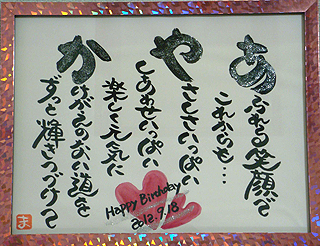 あふれる笑顔で
これからも…
やさしさいっぱい
しあわせいっぱい
楽しく元気に
かけがえのない道を
ずっと輝きつづけて
Happy Birthday
2012.9.18
ま